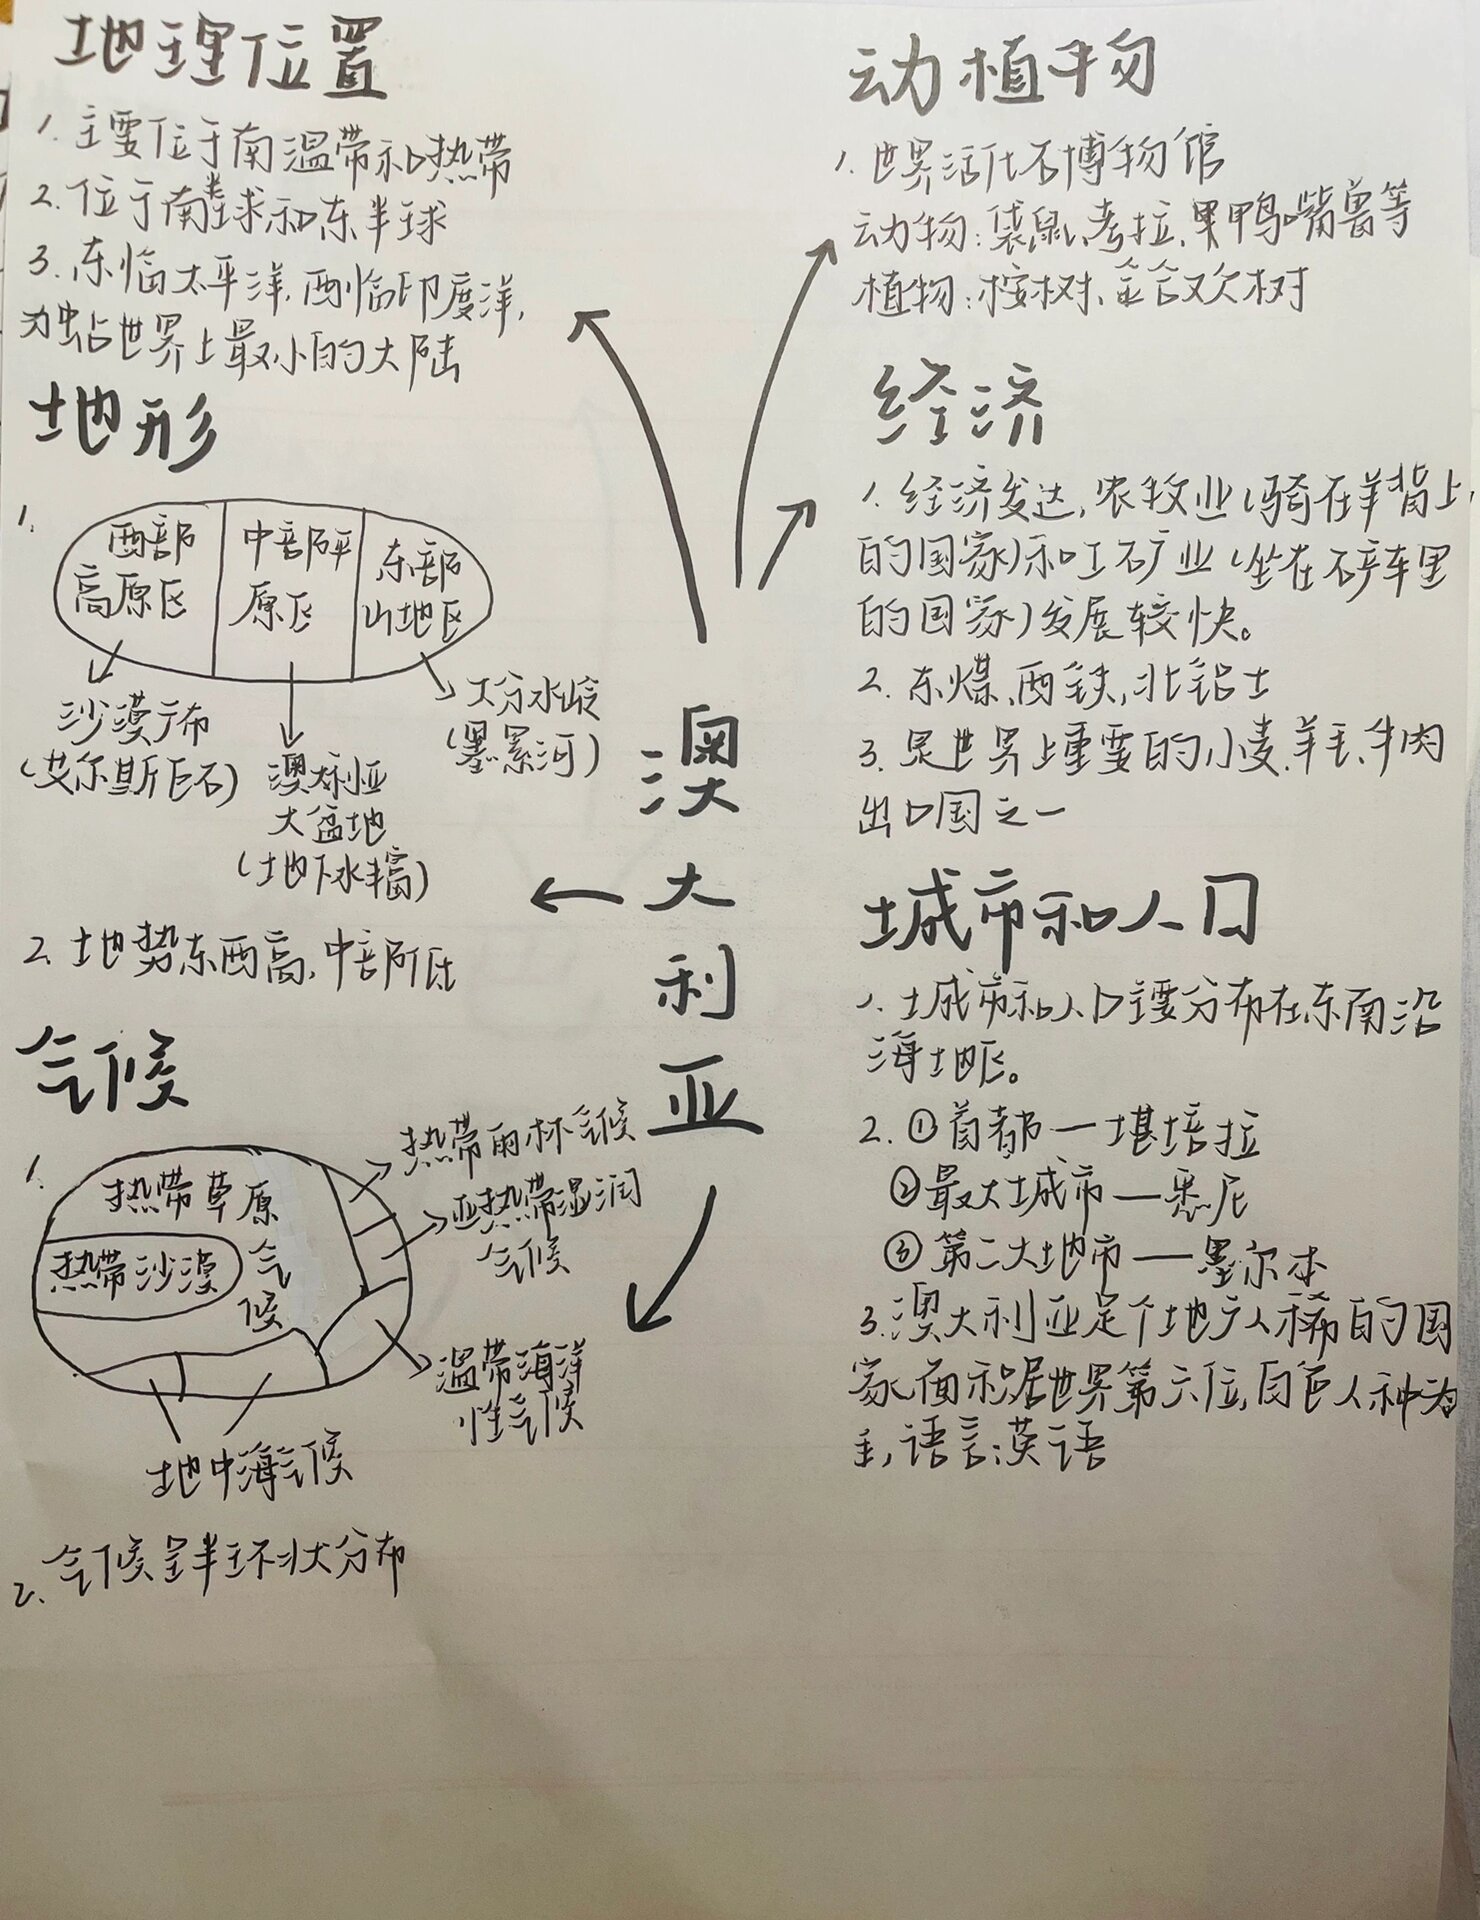 地理位置
1. 主要位于南温带和热带
2. 位于南半球和东半球
3. 东临太平洋,西临印度洋,
为独占世界上最小的大陆
地形
1.
西部
高原区
中部平
原区
东部
山地区
沙漠广布
(艾尔斯巨石)
澳大利亚
大盆地
(地下水丰富)
大分水岭
(墨累河)
2. 地势东西高,中部低
气候
1.
热带草原
气
候
热带沙漠
热带雨林气候
亚热带湿润
气候
温带海洋
性气候
地中海气候
2. 气候呈半环状分布
澳
大
利
亚
动植物
1. 世界活化石博物馆
动物:袋鼠、考拉、鸭嘴兽等
植物:桉树、金合欢树
经济
1. 经济发达,农牧业(骑在羊背上
的国家)和工矿业(坐在矿车里
的国家)发展较快。
2. 东煤、西铁,北铝土
3. 是世界上重要的小麦、羊毛、牛肉
出口国之一
城市和人口
1. 城市和人口主要分布在东南沿
海地区。
2. ①首都—堪培拉
②最大城市—悉尼
③第二大地市—墨尔本
3. 澳大利亚是个地广人稀的国
家,面积居世界第六位,白色人种为
主,语言:英语